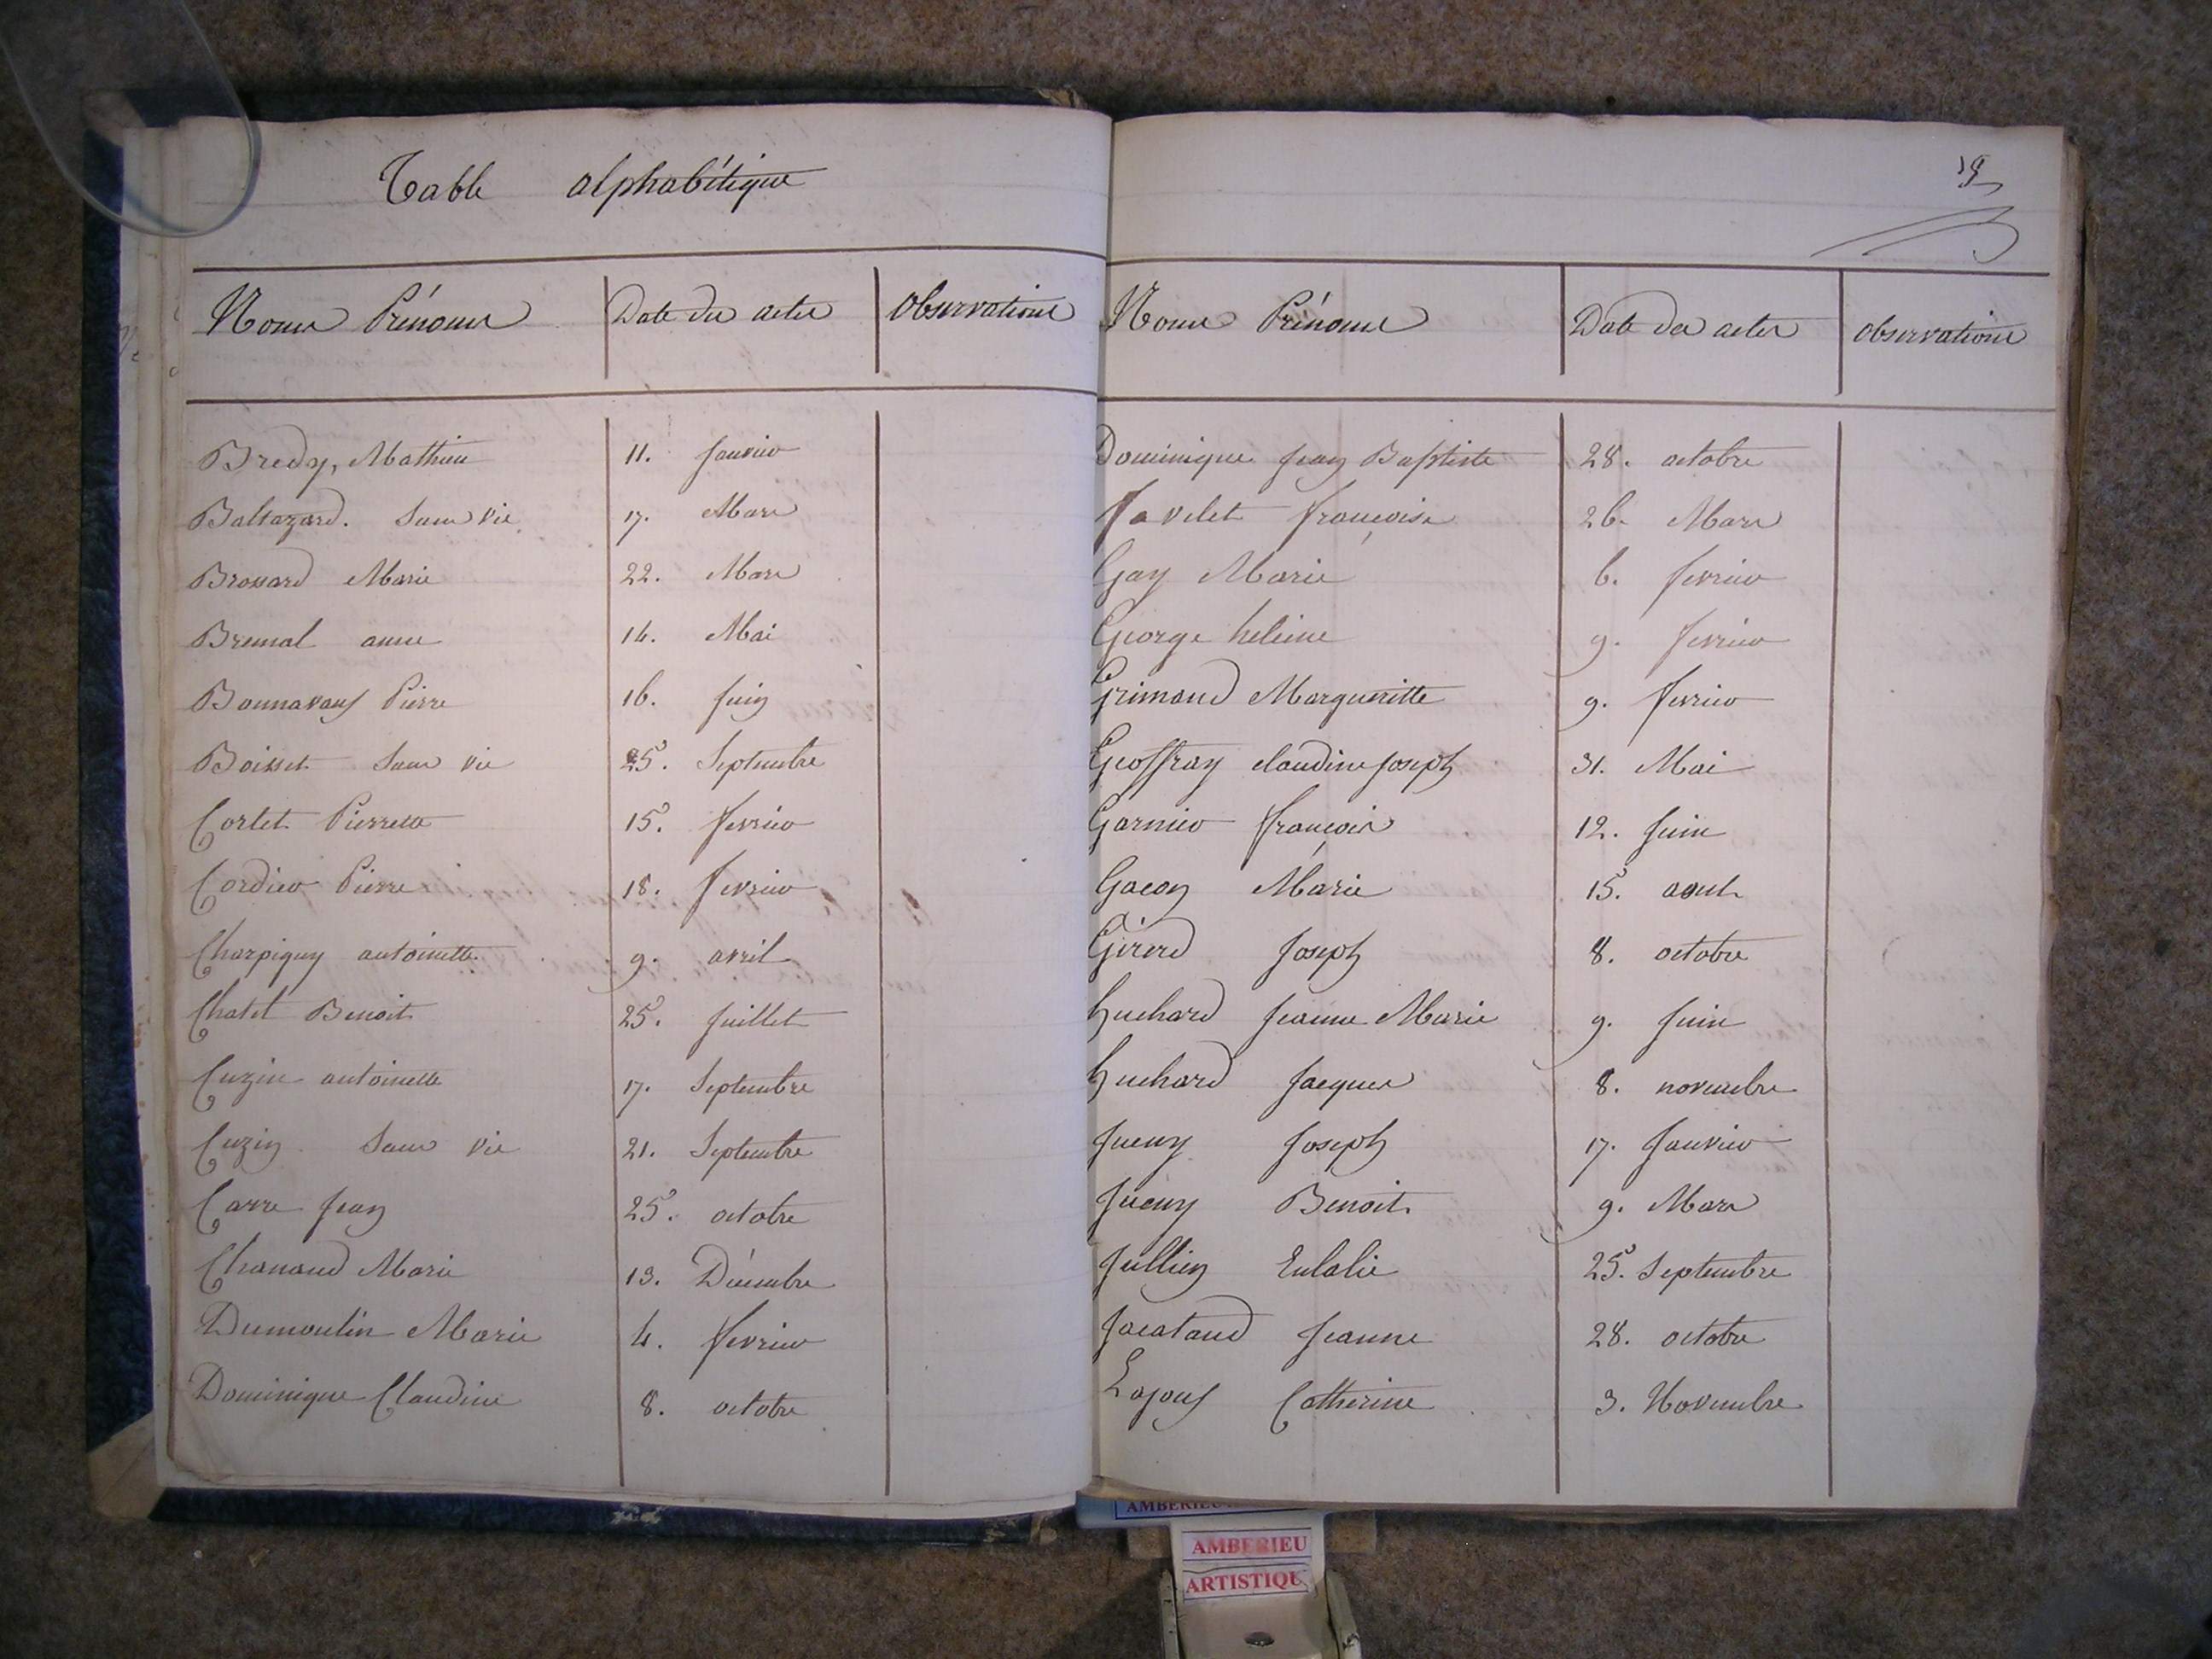 Table alphabétique
Noms Prénoms Date des actes Observations
Bredy, Mathieu 11. Janvier
Baltazard. Sans vie 17. Mars
Brossard Marie 22. Mars
Bremal anne 14. Mai
Bonnavans Pierre 16. Juin
Boisset Sans vie 25. Septembre
Cortet Pierrette 15. fevrier
Cordier Pierre 18. fevrier
Charpigny antoinette 9. avril
Chatel Benoit 25. Juillet
Cuzin antoinette 17. Septembre
Cuzin Sans vie 21. Septembre
Carre Jean 25. octobre
Chanaud Marie 13. Décembre
Dumoulin Marie 4. fevrier
Dominique Claudine 8. octobre
Noms Prénoms Date des actes Observations
Dominique Jean Baptiste 28. octobre
favelet françoise 26. Mars
Gay Marie 6. fevrier
George heleine 9. fevrier
Grimaud Margueritte 9. fevrier
Geoffray claudine Joseph 31. Mai
Garnier françois 12. Juin
Gacon Marie 15. aout
Girerd Joseph 8. octobre
huchard Jeanne Marie 9. Juin
huchard Jacques 8. novembre
Jueny Joseph 17. Janvier
Jueny Benoit. 9. Mars
Jullien Eulalie 25. Septembre
Jacataud Jeanne 28. octobre
Catherine 3. Novembre
AMBERIEU
ARTISTIQU